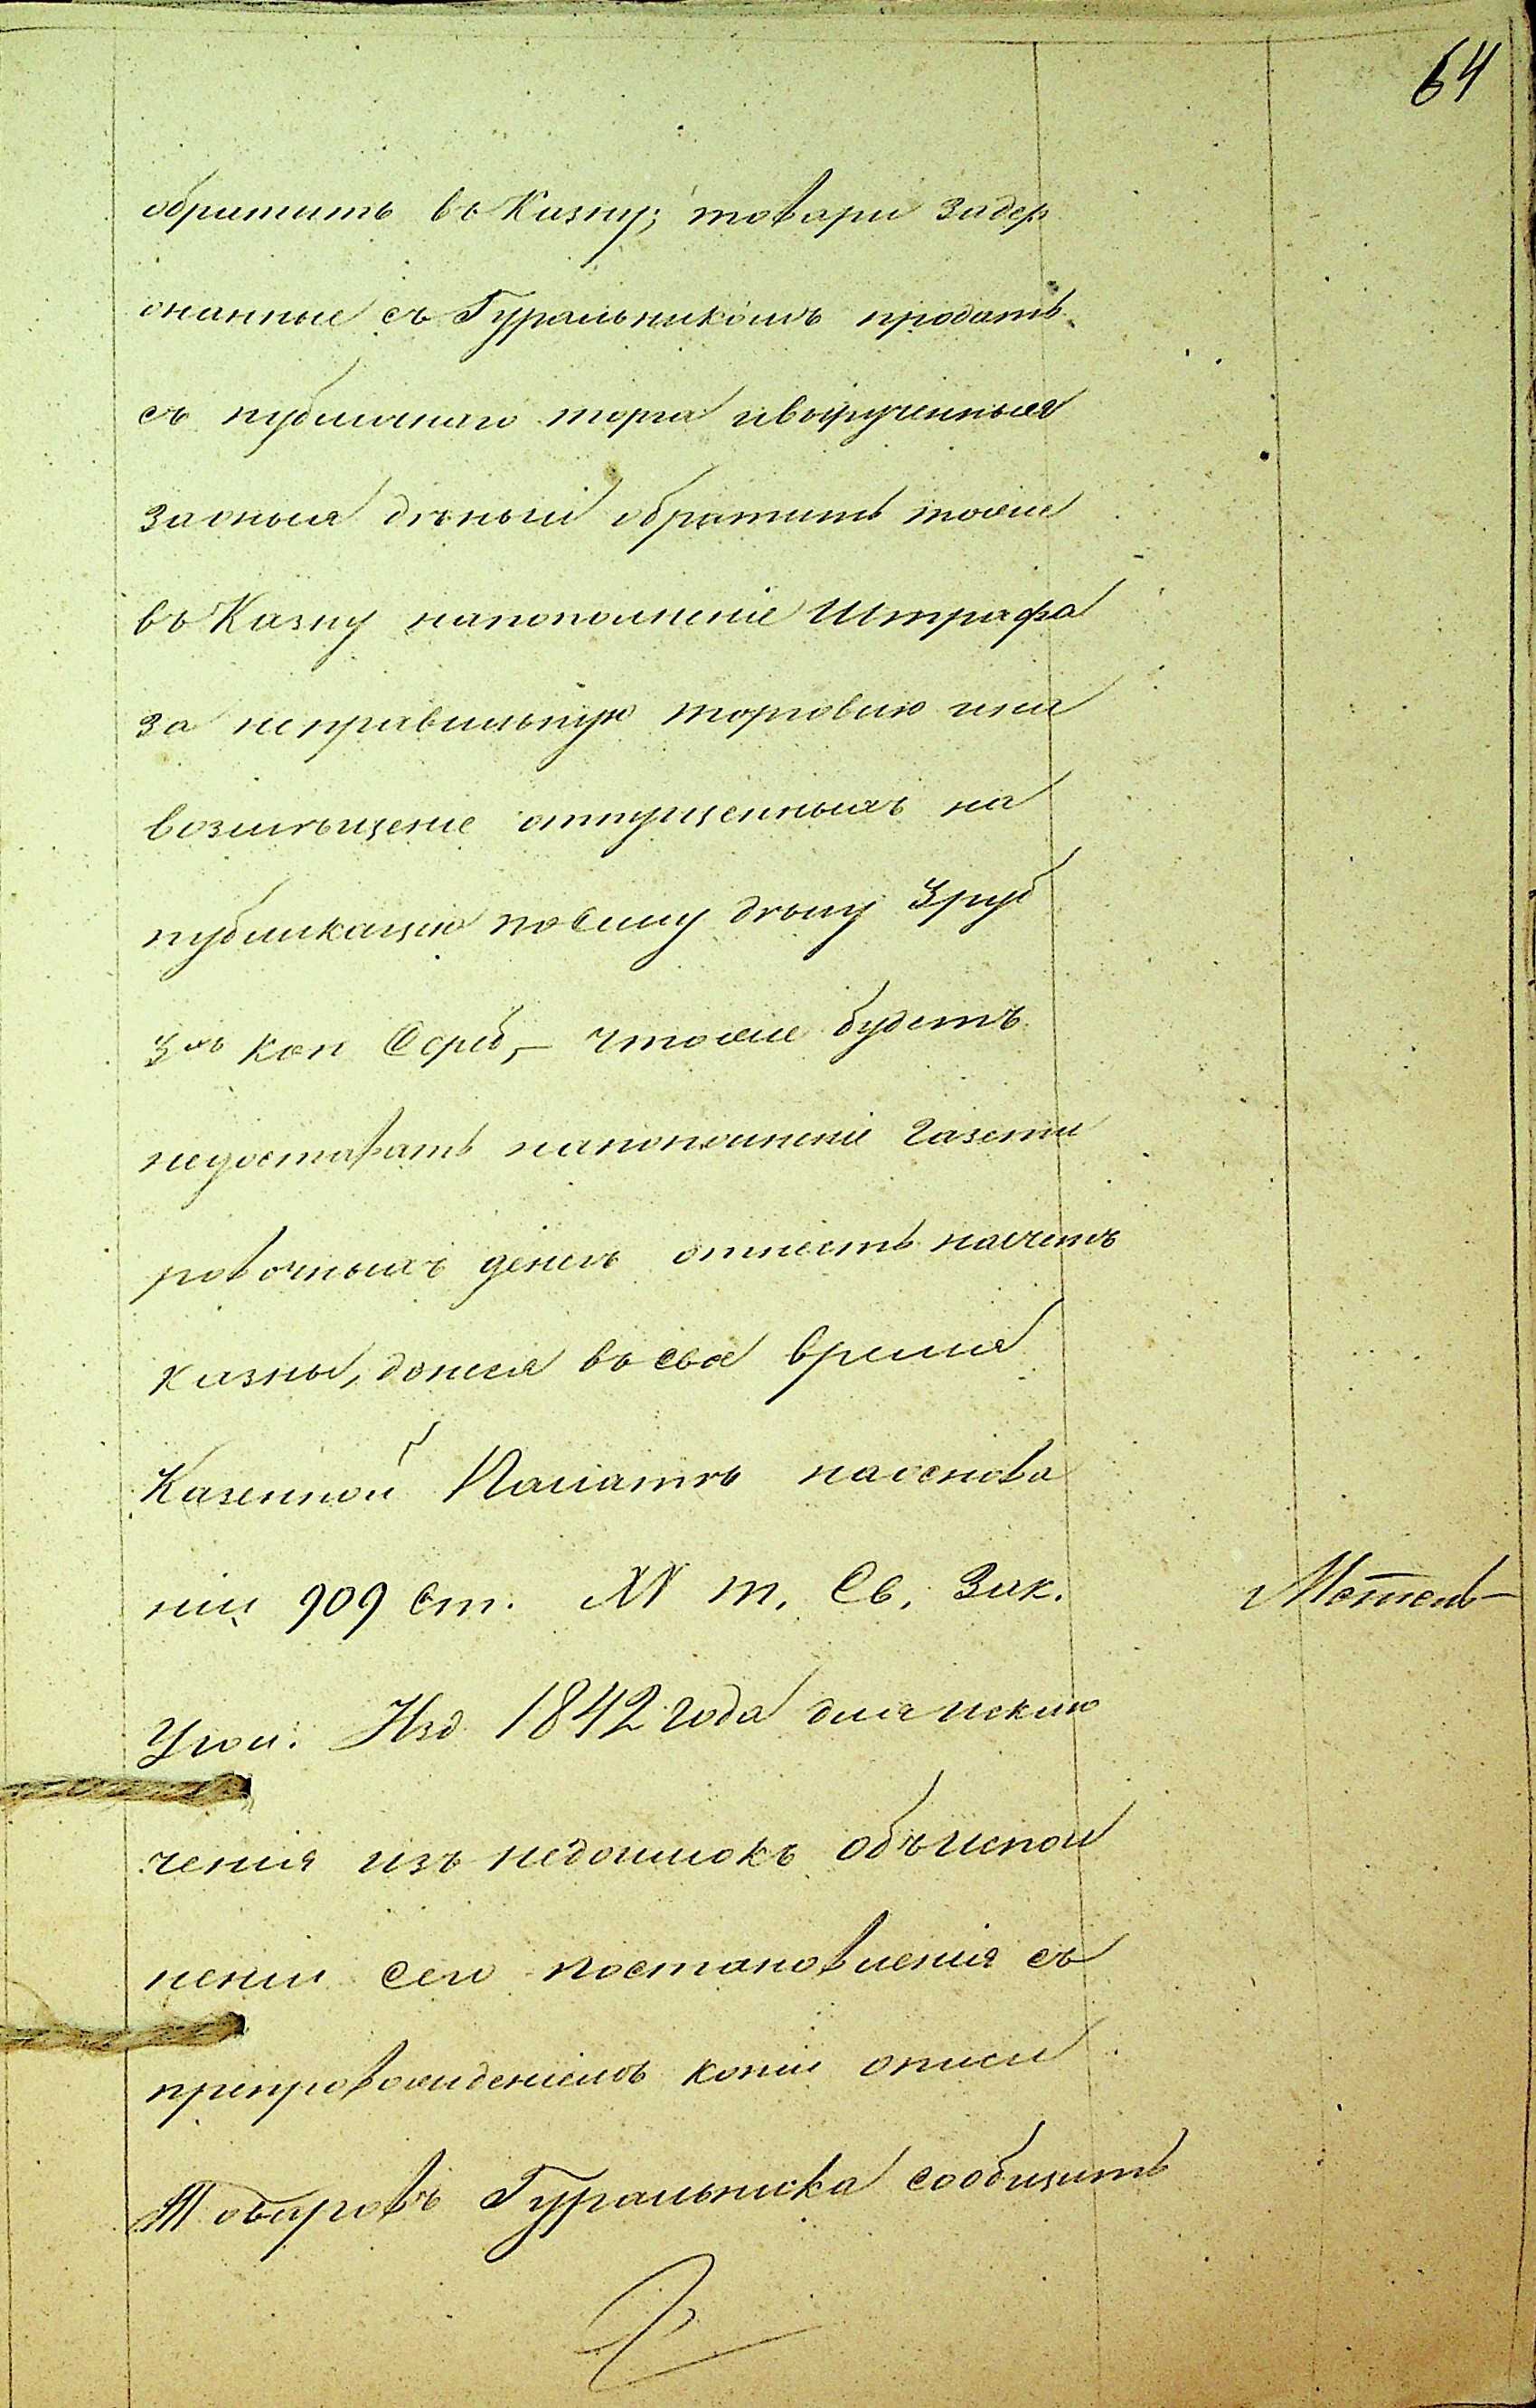 64
обратить въ Казну; товари задер
жанные съ Гуральникомъ продать
съ публичнаго торга ивырученныя
заоныя дѣньги обратить тоже
въ Казну напополненіе Штрафа
за неправильную торговлю ина
возмѣщеніе отпущенныхъ на
публикацію посему дѣлу 3 руб
3хъ коп Сереб,- чтоже будетъ
недоставать напополненіе газети
ровочныхъ денегъ отнесть насчетъ
казны, донеся въ свое время
Казенной Палатѣ наоснова
ніи 909 ст. XV т. Св. Зак.
Угол: Изд 1842 года для исклю
ченія изъ недоимокъ объ испол
неніи сего постановленія съ
препровожденіемъ копіи описи
Товаровъ Гуральника сообщить